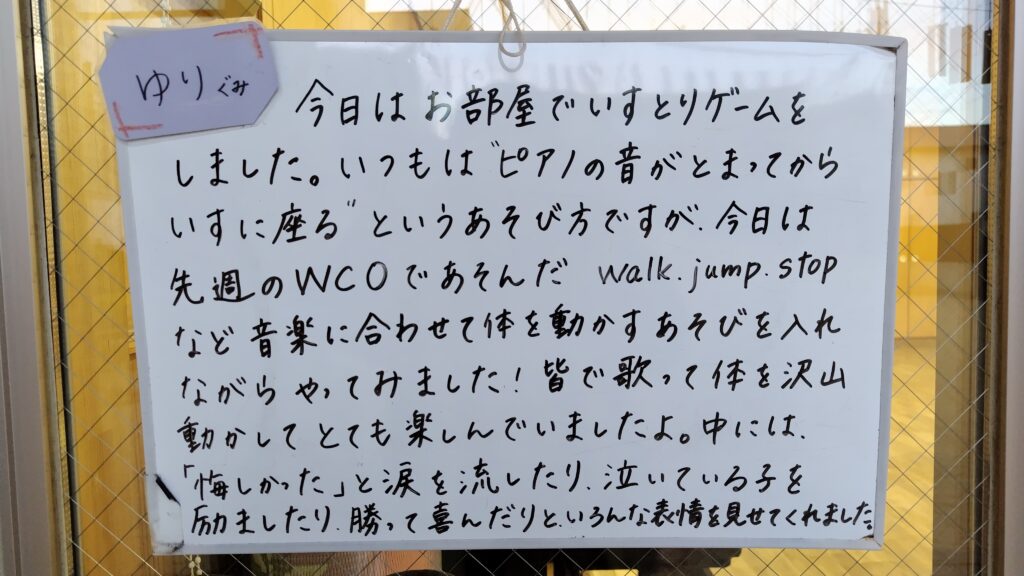 ゆりぐみ
今日はお部屋でいすとりゲームを
しました。いつもは“ピアノの音がとまってから
いすに座る”というあそび方ですが、今日は
先週のWCOであそんだ walk.jump.stop
など音楽に合わせて体を動かすあそびを入れ
ながらやってみました！皆で歌って体を沢山
動かしてとても楽しんでいましたよ。中には、
「悔しかった」と涙を流したり、泣いている子を
励ましたり、勝って喜んだりと、いろんな表情を見せてくれました。